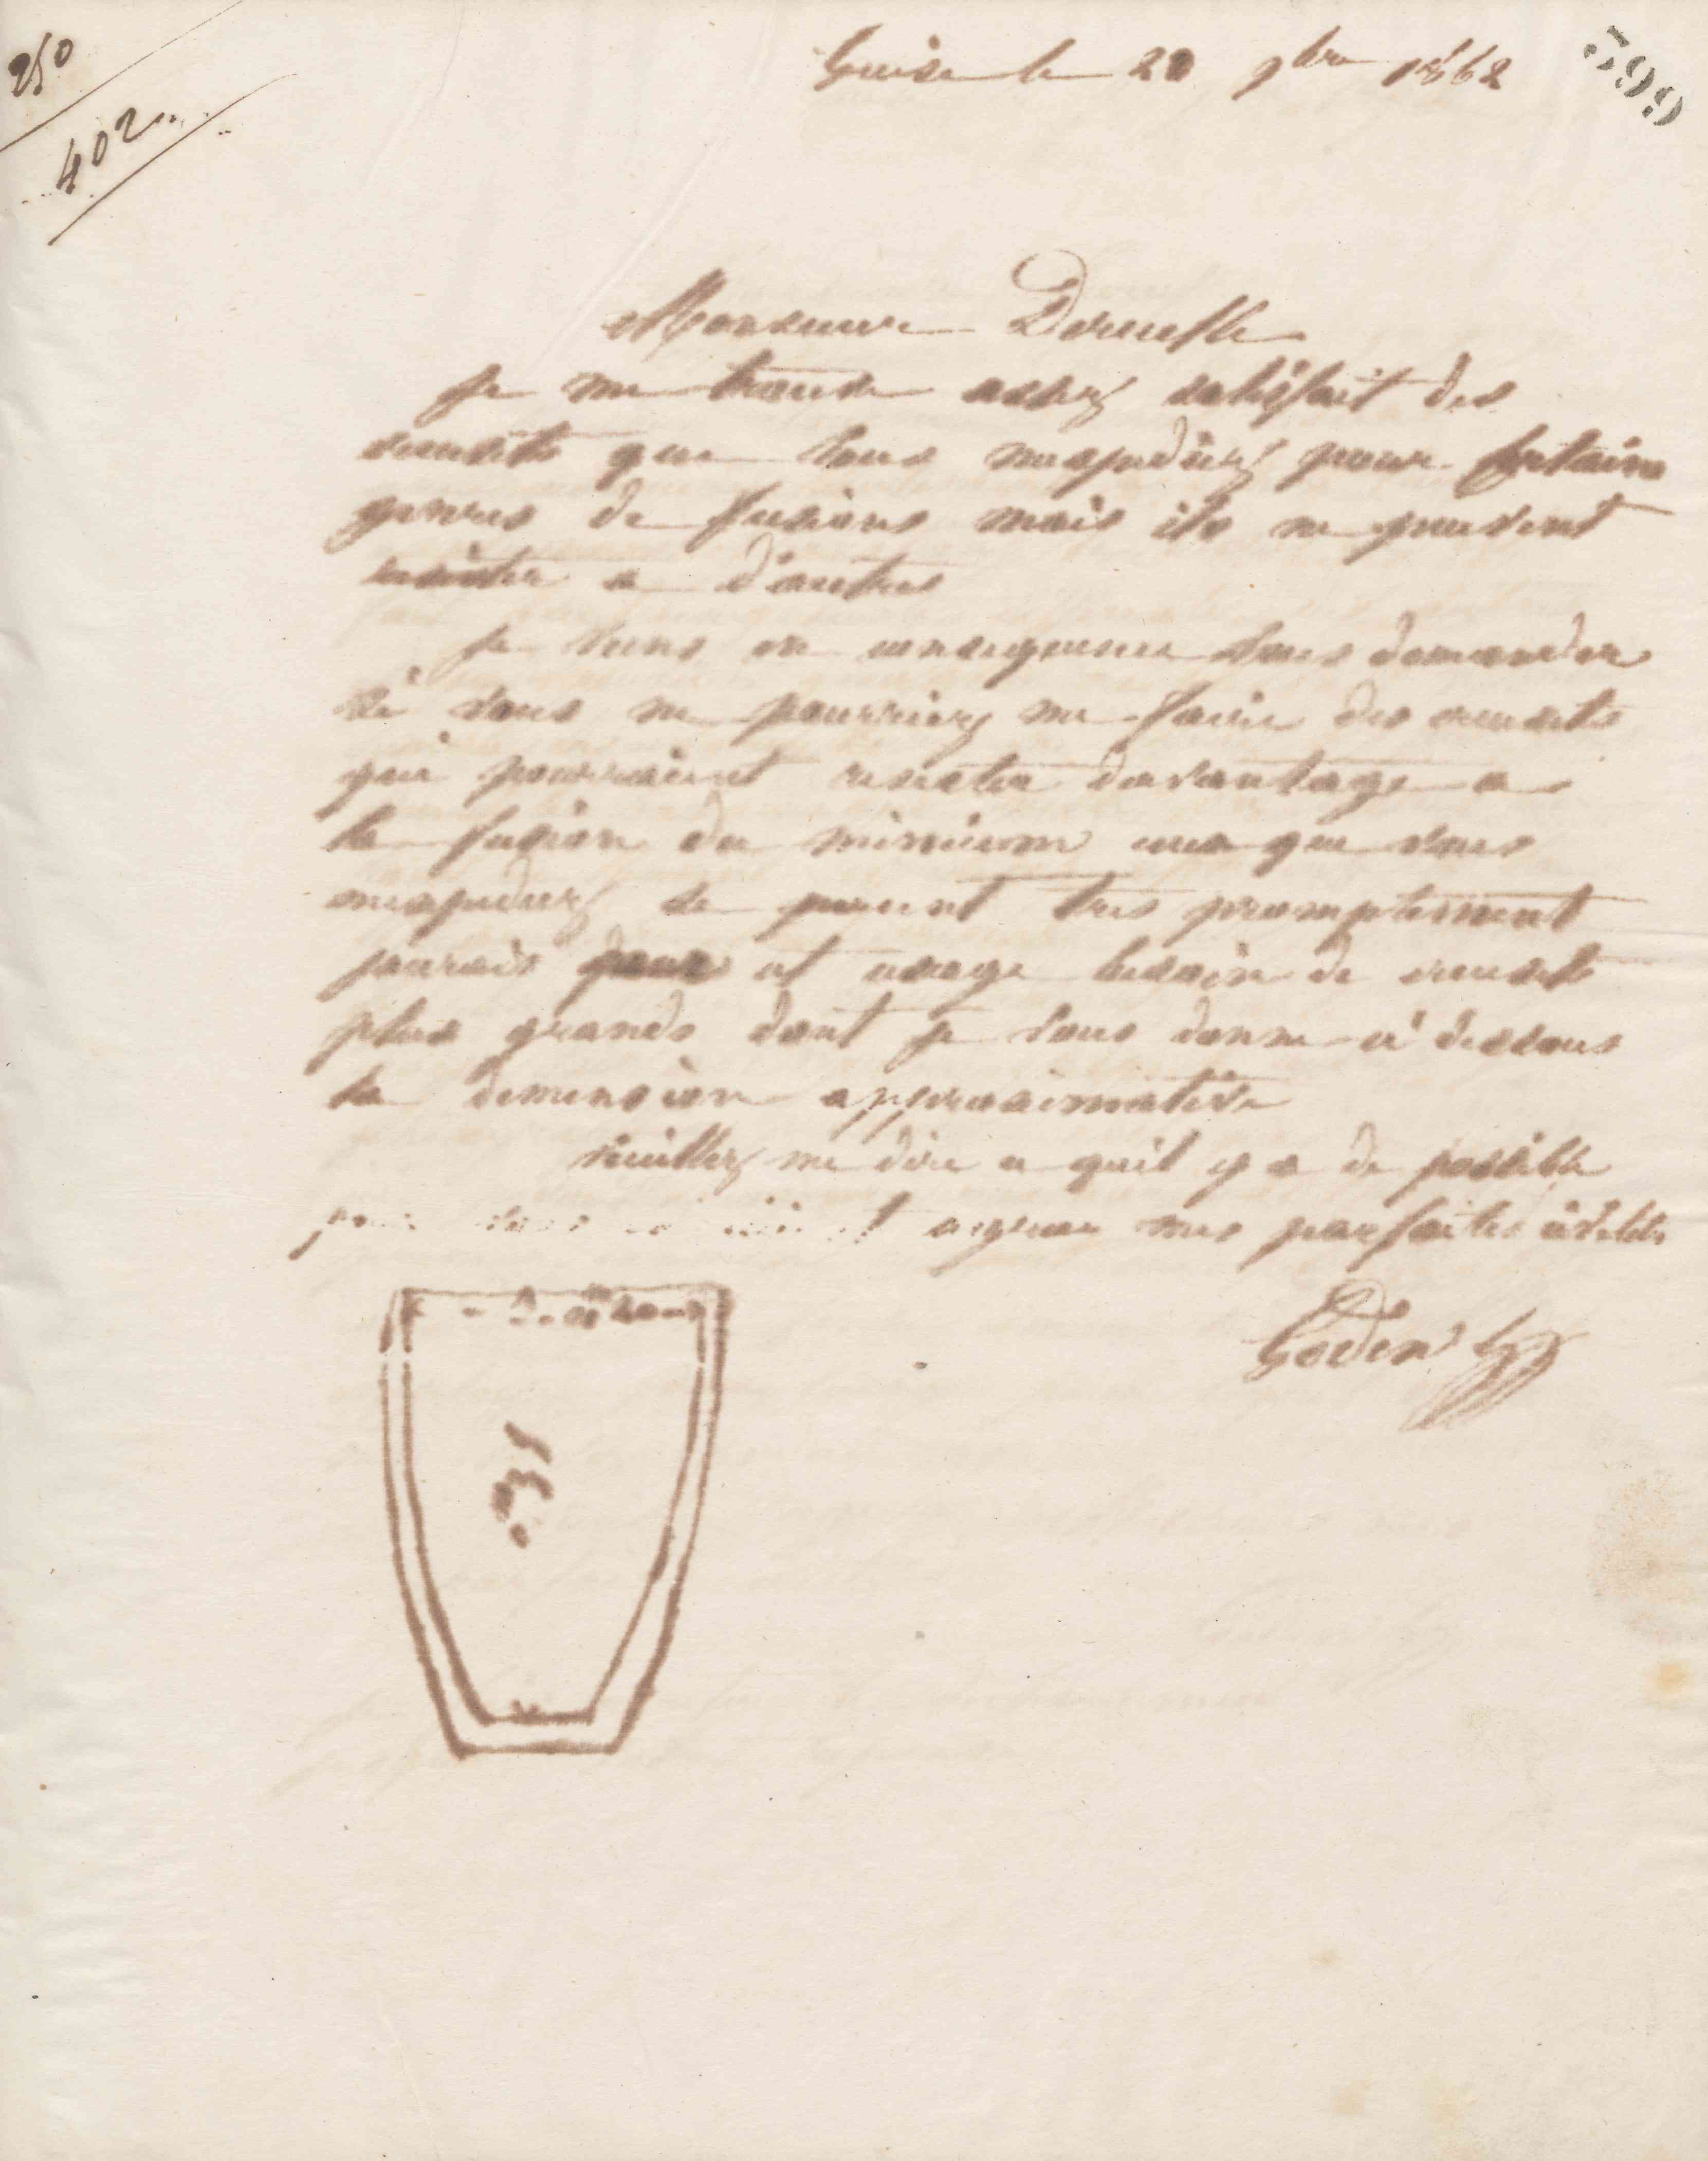 250
402
599
Guise le 20 9bre 1862
Monsieur Deruelle
Je me trouve assez satisfait des
creusets que vous mexpediez pour certains
genres de fusions mais ils ne peuvent
résister a d'autres
Je viens en consequence vous demander
si vous ne pourriez me faire des creusets
qui pourraient resister davantage a
la fusion du minium ceux que vous
mexpediez se percent tres promptement
jaurais pour cet usage besoin de creusets
plus grands dont je vous donne ci dessous
la dimension approximative
veuillez me dire ce quil y a de possible
et agreer mes parfaites civilités
Godin
31